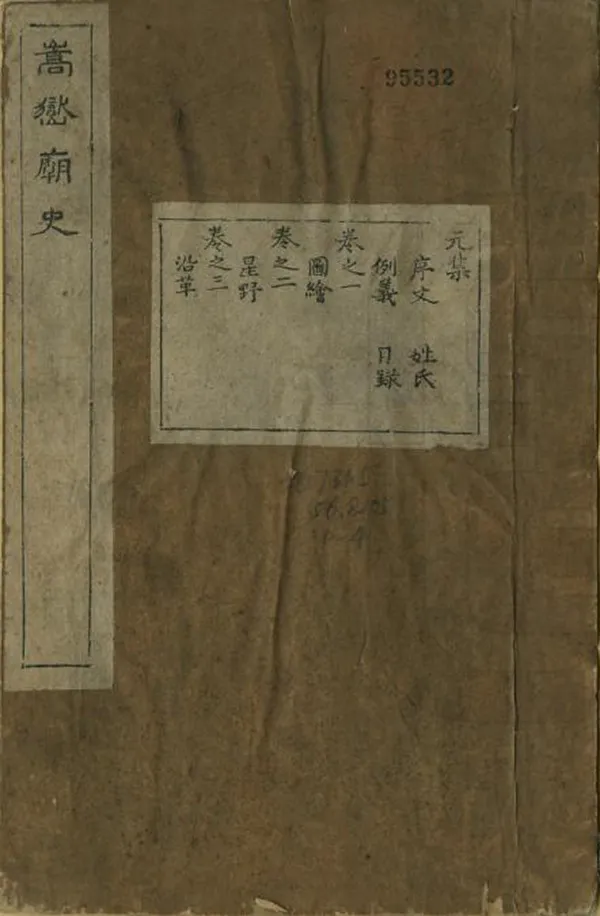 嵩嶽廟史
95532
元集
序文 姓氏
例義 目錄
卷之一
圖繪
卷之二
星野
卷之三
沿革